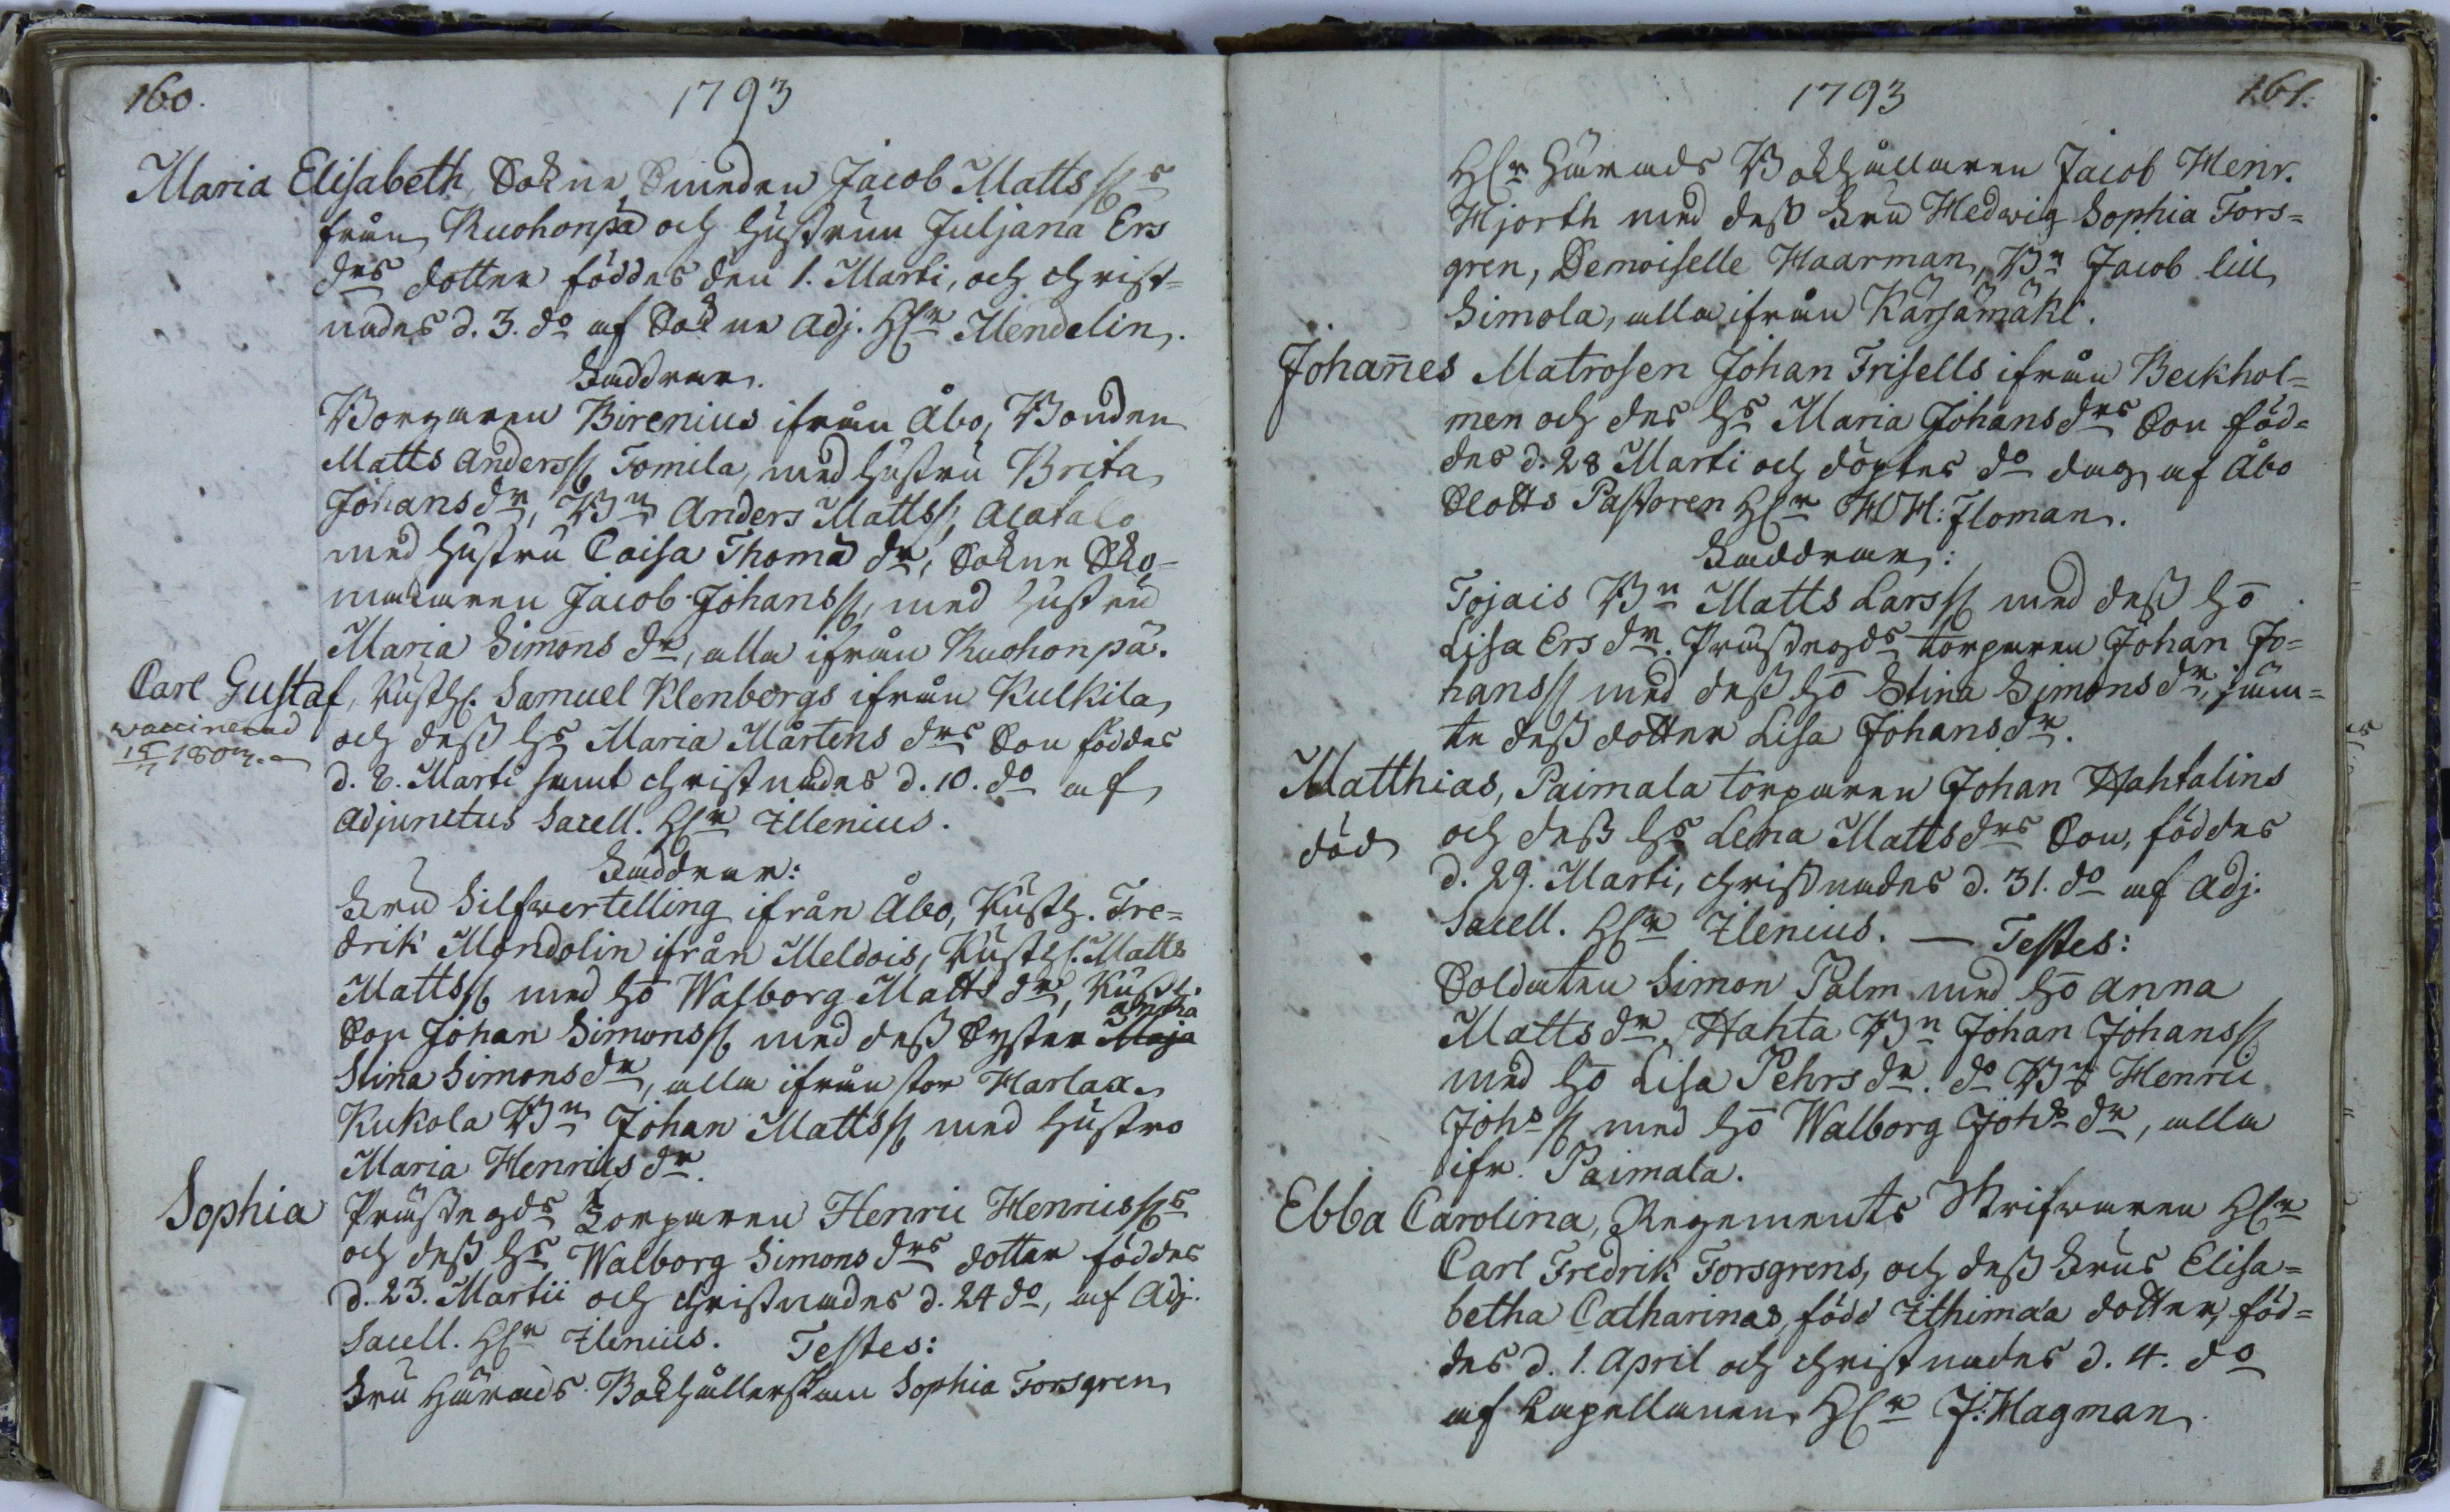 160.
1793
Maria Elisabeth, Sokne Smeden Jacob Mattsss
från Ruohonpä och hustrun Juljana Ers
drs dotter föddes den 1. Marti, och christ=
nades d. 3. do af Sokne Adj. Hr Mendelin.
Faddrar.
Borgaren Birenius ifrån Åbo, Bonden
Matts Anderss Tomila, med hustru Brita
Johansdr, Bn Anders Mattss, Alatalo
med hustru Caisa Thomæ dr, Sokne Sko=
makaren Jacob Johanss, med hustru
Maria Simons dr, alla ifrån Ruohonpä.
Carl Gustaf, Rusth. Samuel Klenbergs ifrån Kulkila,
waccinerad
och dess hs Maria Mårtens drs Son föddes
d. 8. Marti samt christnades d. 10. do af
Adjunctus Sacell. Hr Zilenius.
Faddrar:
Fru Silfwertelling ifrån Åbo, Rusth. Fre=
drik Mondolin ifrån Meldois, Rusth. Matts
Mattss med ho Walborg Matts dr, Rusth.
Son Johan Simonss med dess Syster Maja
Stina Simonsdr, alla ifrån stor Harlax.
Kukola Bn Johan Mattss med hustro
Maria Henrics dr.
Sophia Prästegds Torparen Henric Henricsss
och dess hs Walborg Simons drs dotter föddes
d. 23. Martii och christnades d. 24 do, af Adj.
Sacell. Hr Zilenius. Testes:
Fru Härads Bokhållerskan Sophia Forsgren
1793
161.
Hr Härads Bokhållaren Jacob Henr.
Hjorth med dess Fru Hedwig Sophia Fors=
gren, Demoiselle Haarman, Bn Jacob lill
Simola, alla ifrån Kärsämäki.
Johannes Matrosen Johan Frisells ifrån Beckhol=
men och des hs Maria Johans drs Son föd=
des d. 28 Marti och döptes do dag af Åbo
Slotts Pastoren Hr H: Floman.
Faddrar:
Tojais Bn Matts Larss med dess ho
Lisa Ers dr. Prästegds torparen Johan Jo=
hanss med dess ho Stina Simons dr, säm=
te dess dotter Lisa Johansdr.
Matthias, Paimala torparen Johan Hahtalins
död och dess hs Lena Mattsdrs Son, föddes
d. 29. Marti, christnades d. 31. do af Adj.
Sacell. Hr Zilenius. — Testes:
Soldaten Simon Palm med ho Anna
Matts dr. Hahta Bn Johan Johanss
med ho Lisa Pehrs dr. do Bn Henric
Johs s med ho Walborg Johs dr, alla
ifr. Paimala.
Ebba Carolina, Regements Skrifwaren Hr
Carl Fredrik Forsgrens, och dess Frus Elisa=
betha Catharinas, född Zithimæa dotter, föd=
des d. 1. April och christnades d. 4. do
af Capellanen Hr J: Hagman.